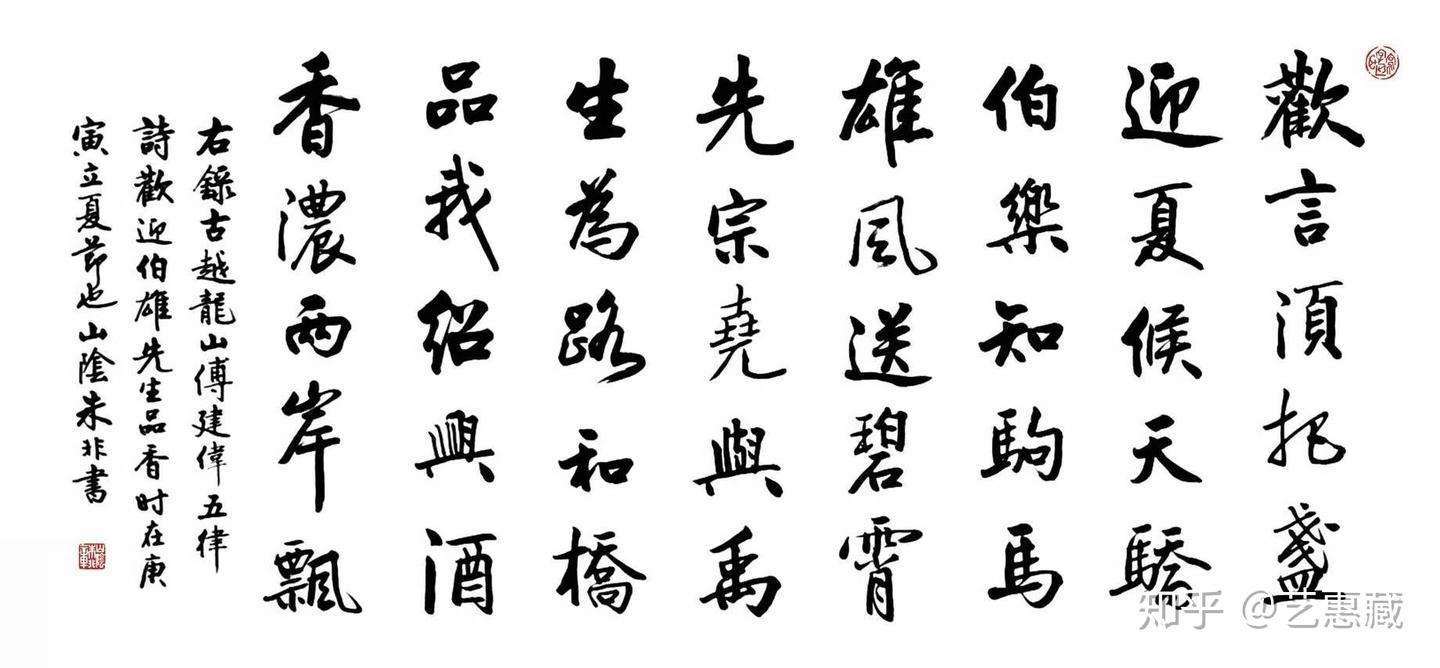 歡言須把盞
迎夏候天驕
伯樂知駒馬
雄風送碧霄
先宗堯與禹
生為路和橋
品我紹興酒
香濃兩岸飄
右錄古越龍山傅建偉五律
詩歡迎伯雄先生品香时在庚
寅立夏节也山陰朱非书
知乎 @艺惠藏